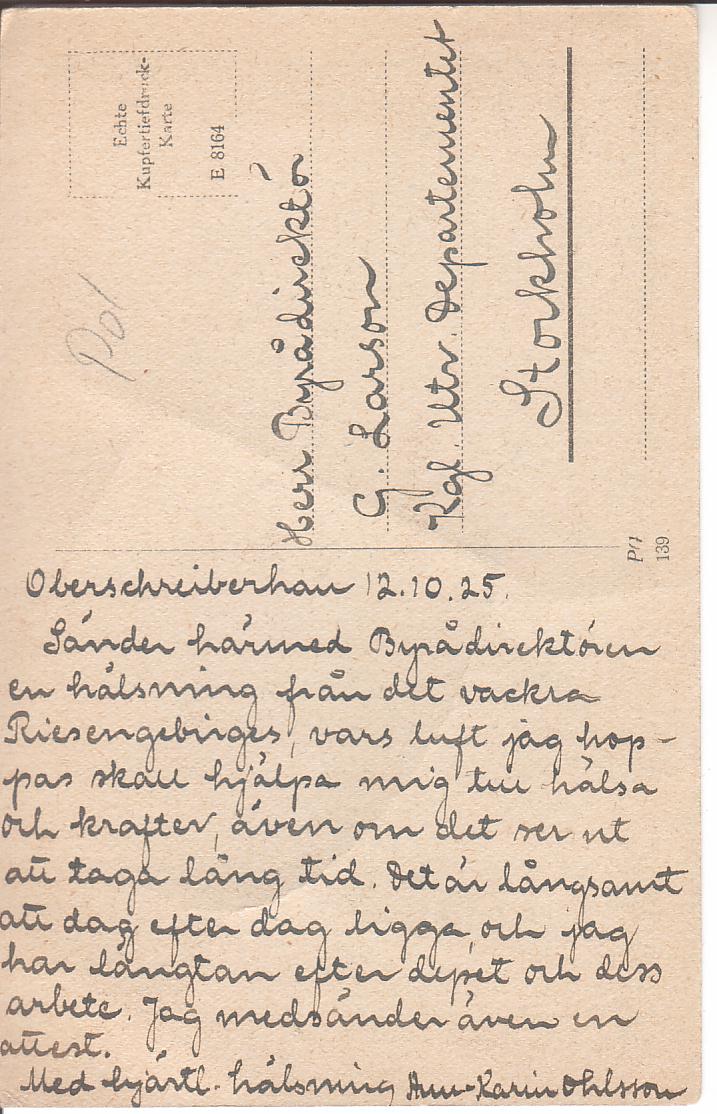 Echte
Kupfertiefdruck-
Karte
E 8164
Pol
Herr Byrådirektör
G. Larson
Kgl. Utr. Departementet
Stockholm
139
Oberschreiberhau 12.10.25.
Sänder härmed Byrådirektören
en hälsning från det vackra
Riesengebirges, vars luft jag hop-
pas skall hjälpa mig till hälsa
och krafter, även om det ser ut
att taga lång tid. Det är långsamt
att dag efter dag ligga, och jag
har längtan efter depet och dess
arbete. Jag medsänder även en
attest.
Med hjärtl. hälsning Ann-Karin Ohlsson